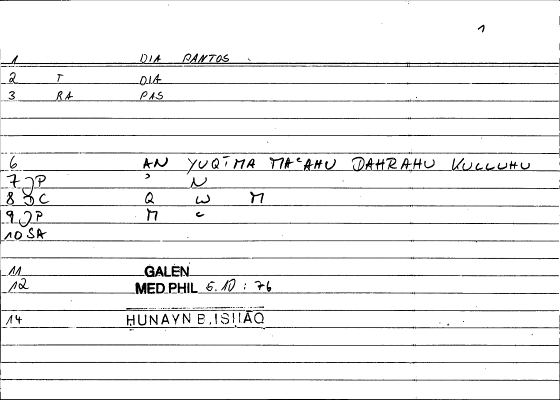 1
1 DIA PANTOS
2 T DIA
3 RA PAS
6 AN YUQĪMA MAʿAHU DAHRAHU KULLUHU
7 JP ʾ N
8 JC Q W M
9 JP M ʿ
10 SA
11 GALEN
12 MED PHIL 6.10 : 76
14 HUNAYN B. ISHAQ